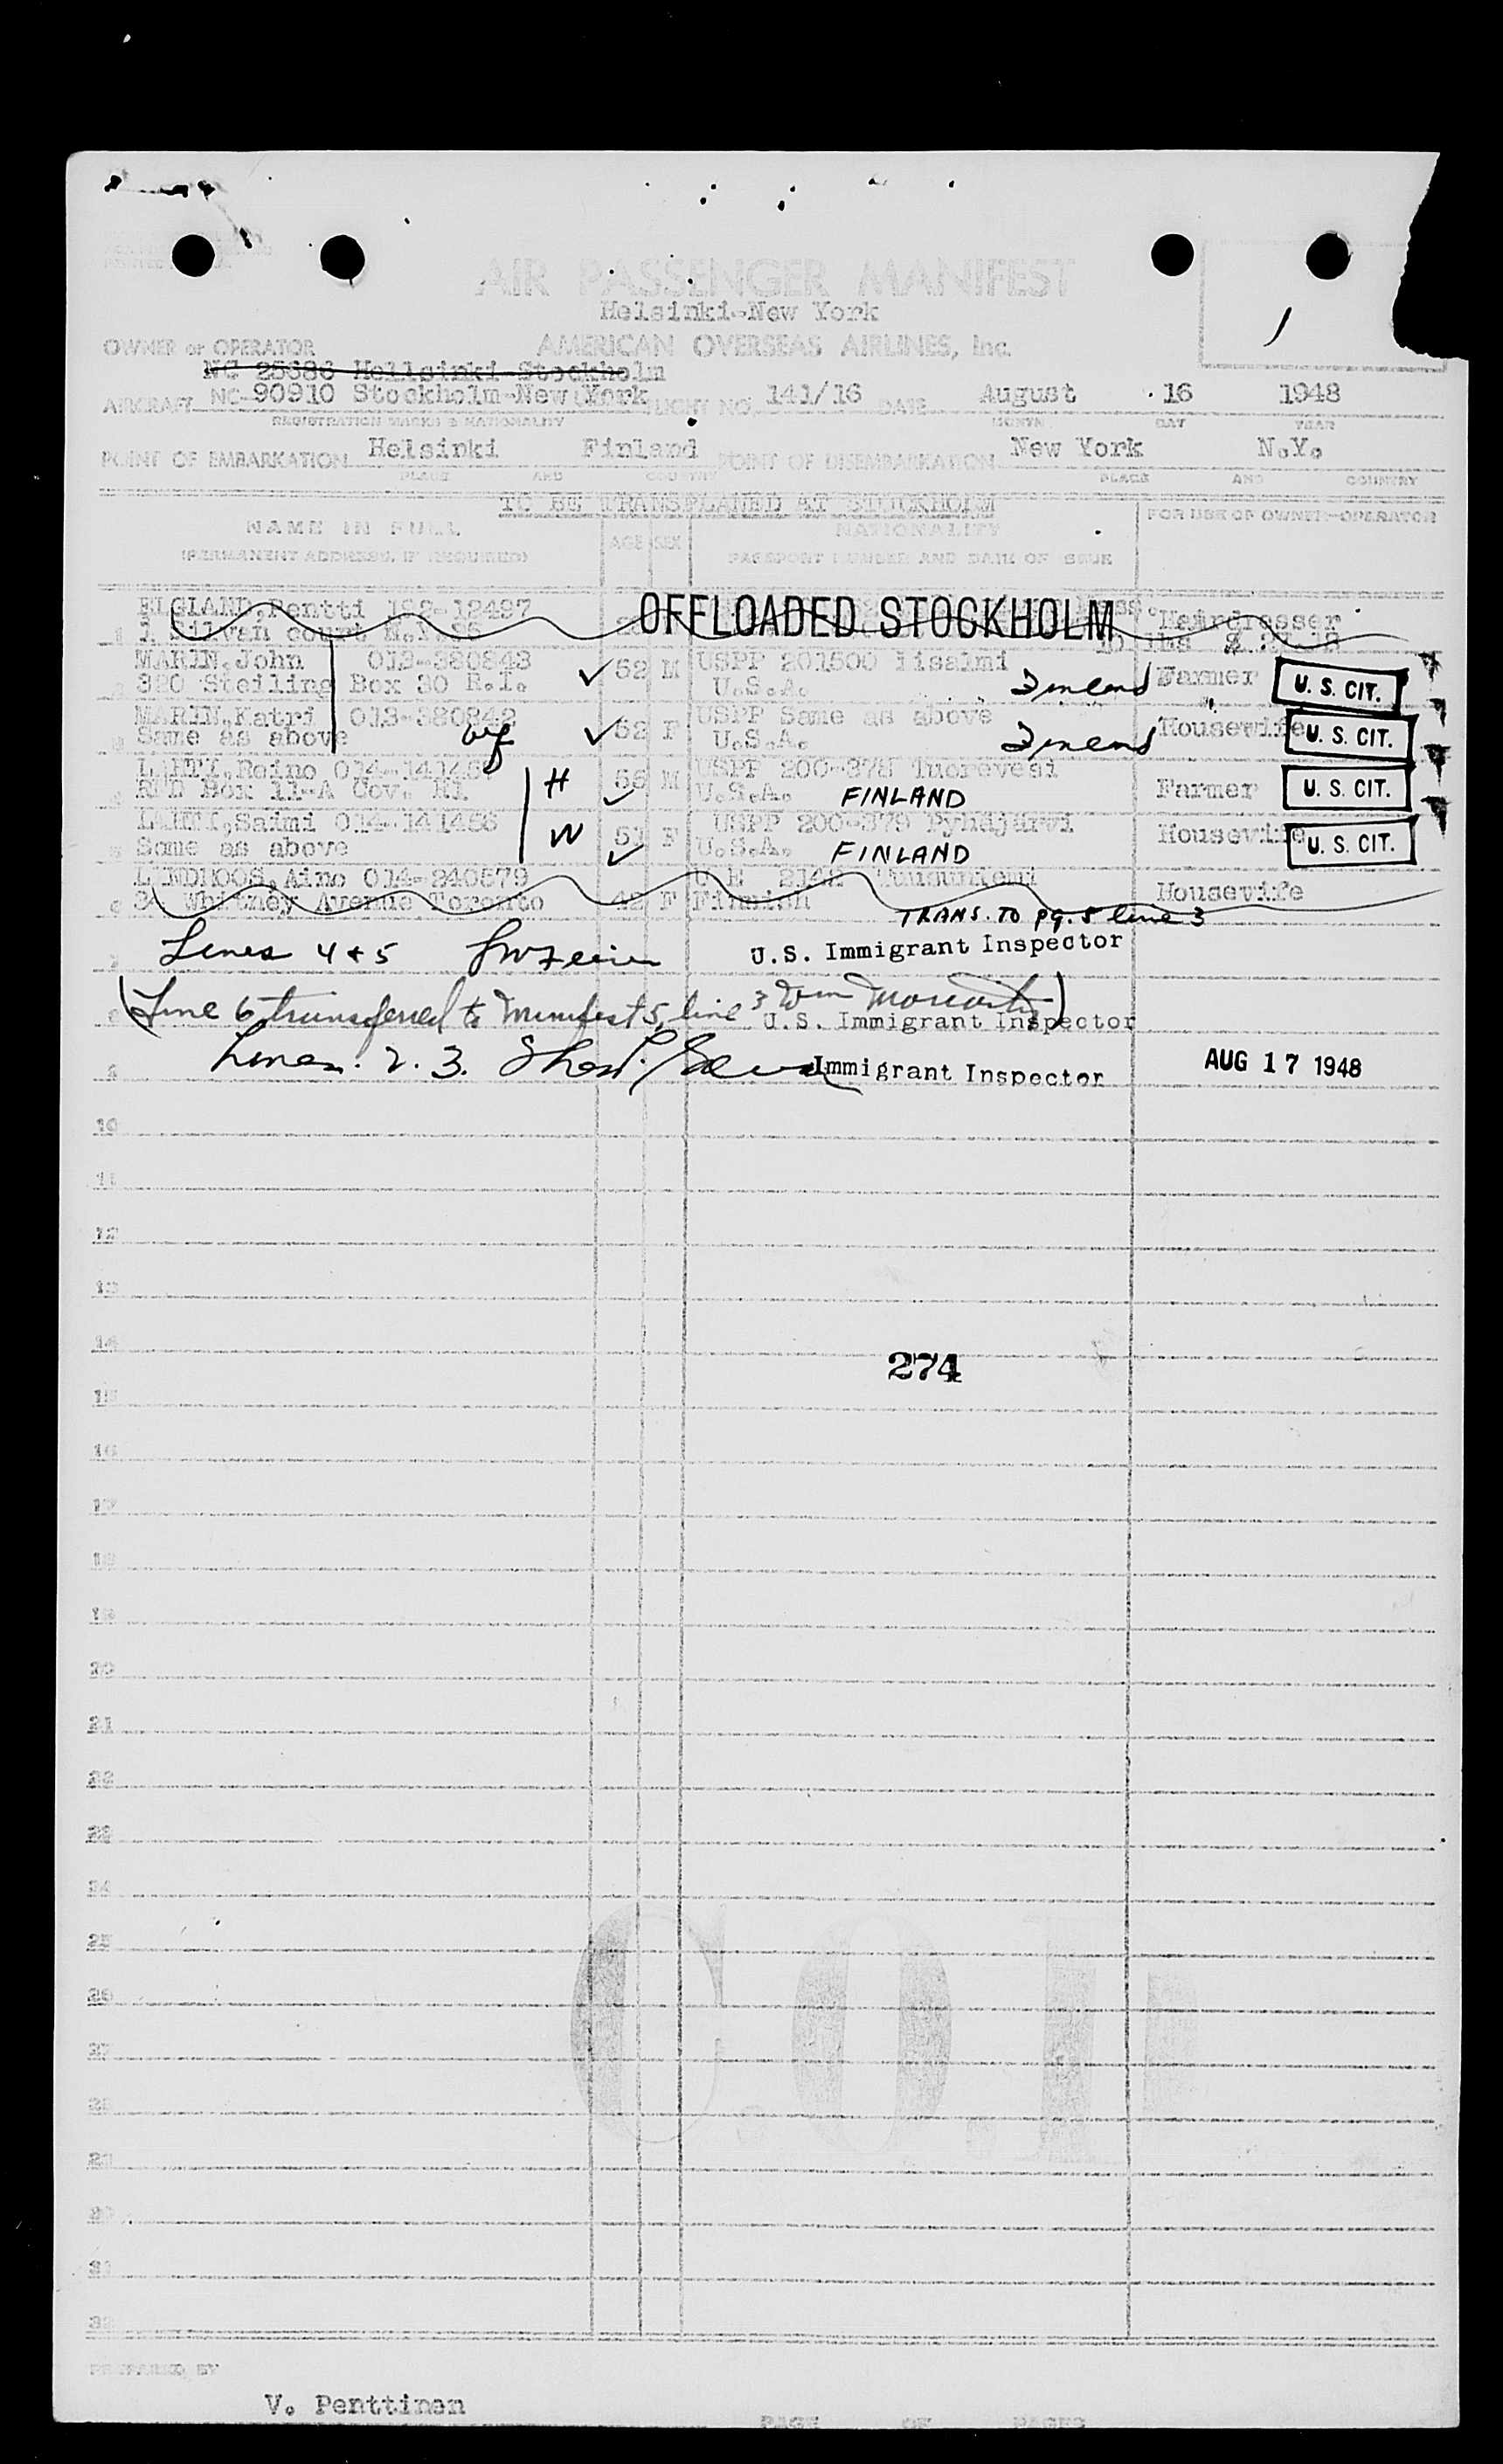 AIR PASSENGER MANIFEST
Helsinki-New York
OWNER or OPERATOR AMERICAN OVERSEAS AIRLINES, Inc.
NC 25686 Hellsinki-Stockholm
AIRCRAFT NC-90910 Stockholm-New York FLIGHT NO. 141/16 DATE August 16 1948
REGISTRATION MARKS & NATIONALITY MONTH DAY YEAR
POINT OF EMBARKATION Helsinki Finland POINT OF DISEMBARKATION New York N.Y.
PLACE AND COUNTRY PLACE AND COUNTRY
TO BE TRANSPLANED AT STOCKHOLM
NAME IN FULL AGE SEX NATIONALITY FOR USE OF OWNER-OPERATOR
(PERMANENT ADDRESS, IF REQUIRED) PASSPORT NUMBER AND DATE OF ISSUE
Pentti OFFLOADED STOCKHOLM Hairdresser
1 court
MAKIN, John 013-380843 52 M USPP 201500 Iisalmi Farmer U. S. CIT.
320 Box 30 R.I. U.S.A. Finland
MAKIN, Katri 013-380842 wf 52 F USPP Same as above Housewife U. S. CIT.
Same as above U.S.A. Finland
LAHTI, Reino H 56 M USPP 200-378 Farmer U. S. CIT.
RFD Box 11-A Cov. RI U.S.A. FINLAND
LAHTI, Saimi 014-141456 W F USPP 200-379 Pyhäjärvi Housewife U. S. CIT.
5 Same as above U.S.A. FINLAND
LINDROOS, Aino 014-240579 2142
6 34 Whitney Avenue Toronto 42 F Finnish Housewife
TRANS. TO pg. 5 line 3
Lines 4 & 5 U.S. Immigrant Inspector
(Line 6 transferred to Manifest 5, line 3 Wm Moriarty)
U.S. Immigrant Inspector
Lines. 2. 3. Immigrant Inspector AUG 17 1948
10
11
12
13
14
274
15
16
17
18
19
20
21
22
23
24
25
26
27
28
29
30
31
32
PREPARED BY
V. Penttinen
PAGE OF PAGES